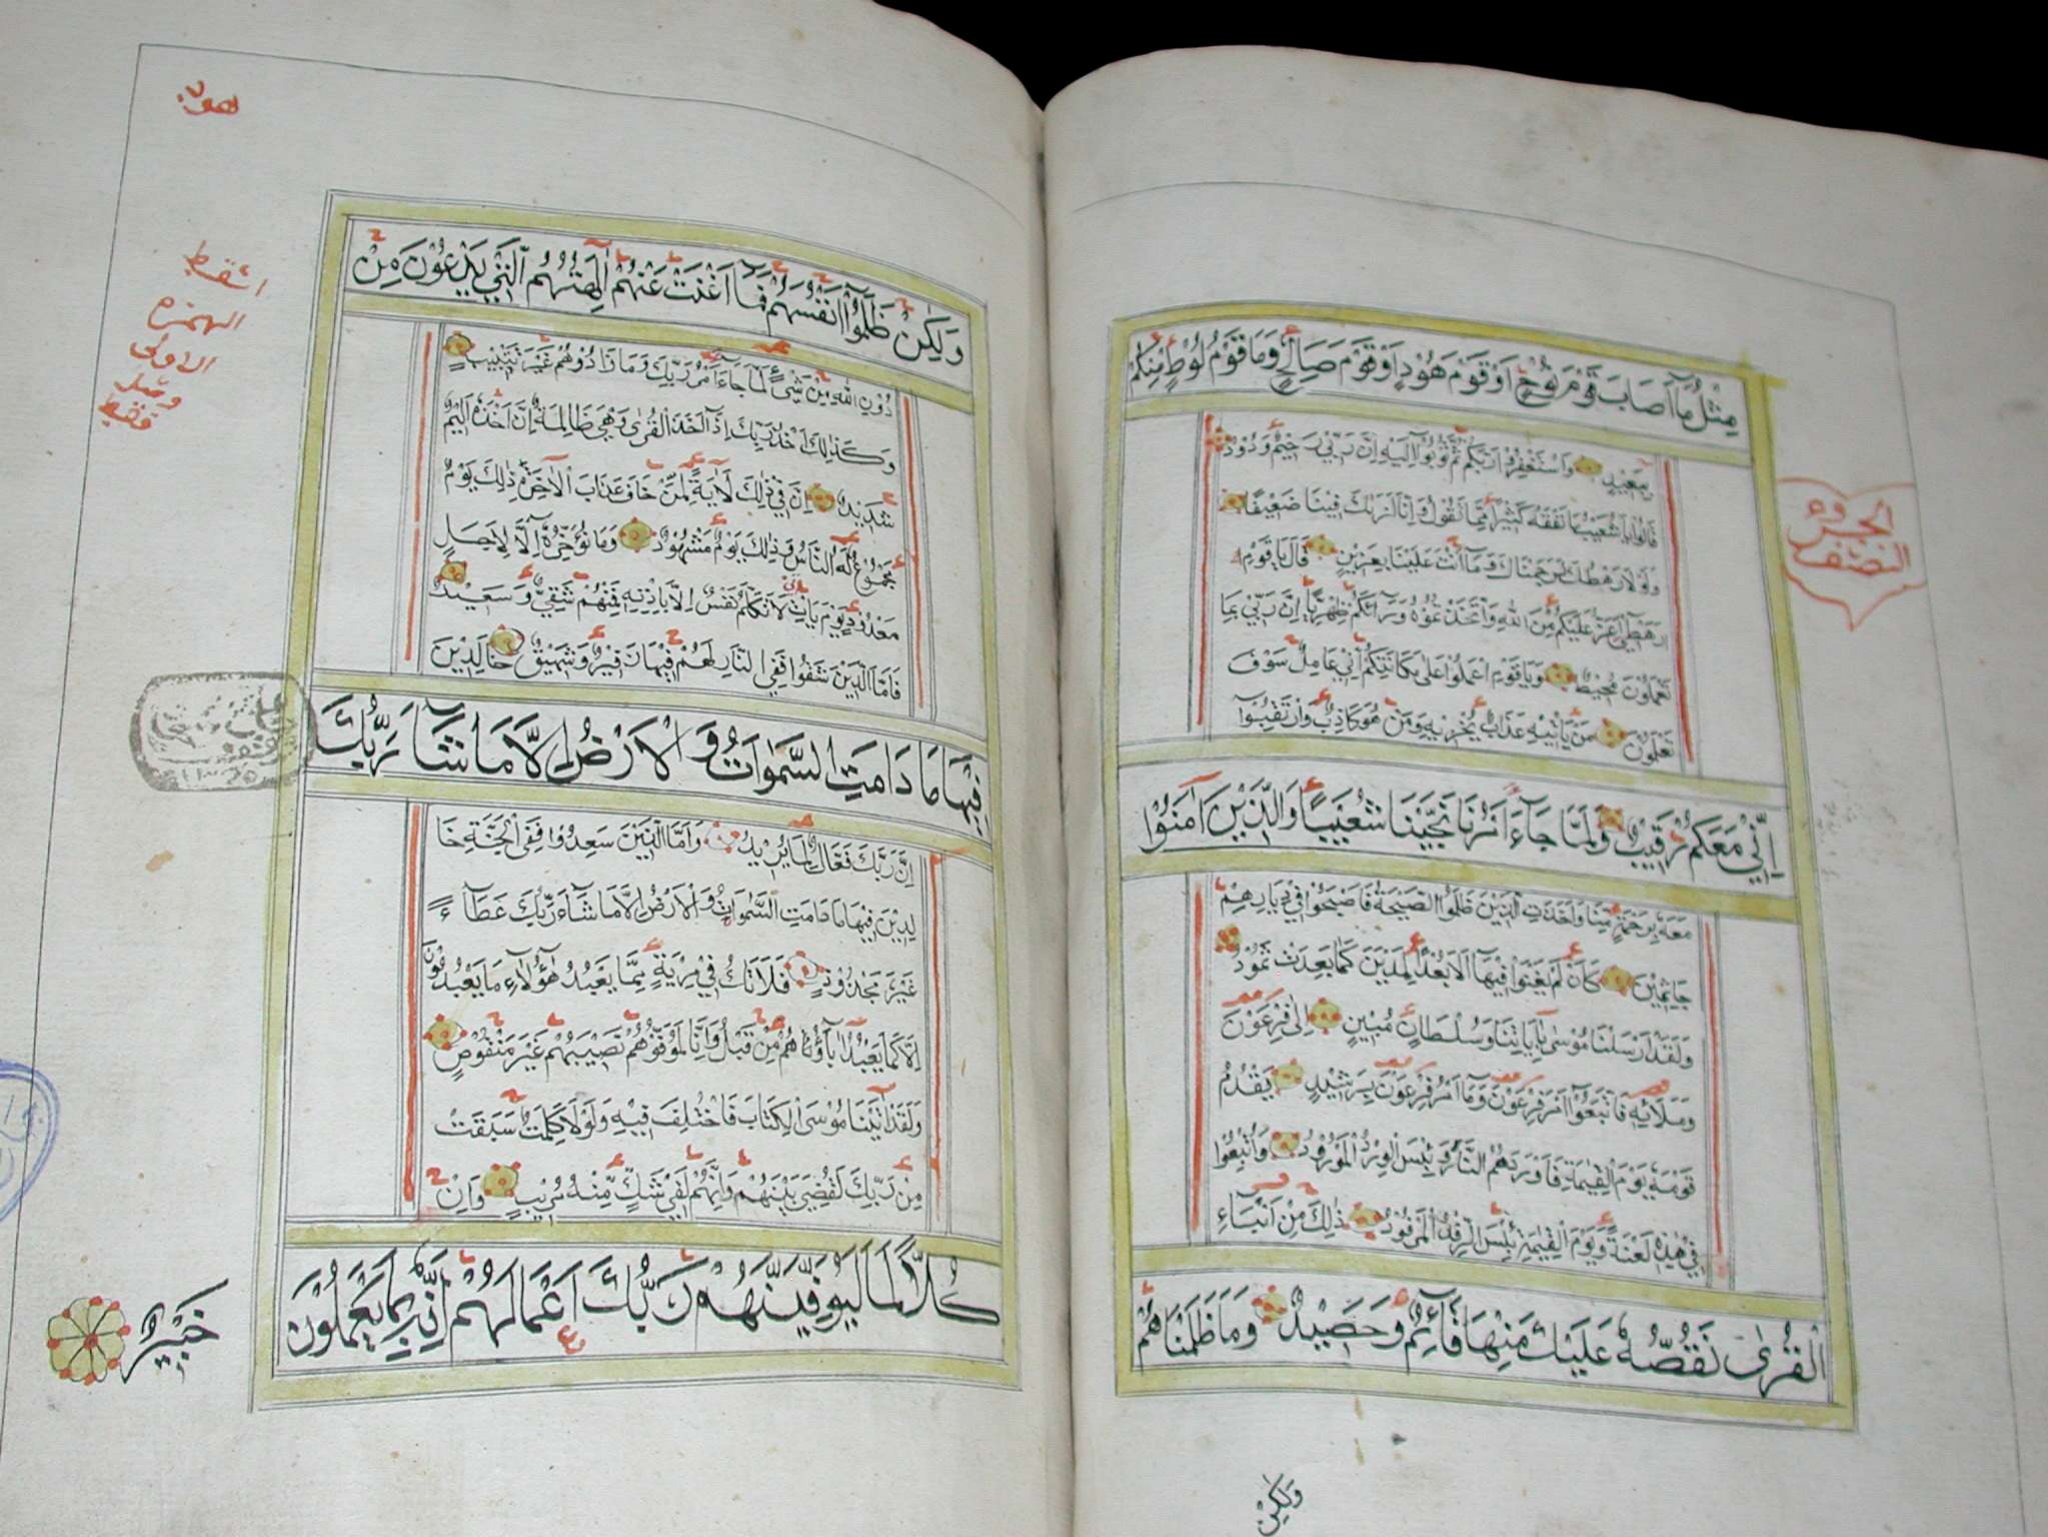 مِثْلُ مَا أَصَابَ قَوْمَ نُوحٍ اَوْ قَوْمَ هُوْدٍ اَوْ قَوْمَ صَالِحٍ وَمَا قَوْمُ لُوْطٍ مِنْكُمْ
بِبَعِيْدٍ وَاسْتَغْفِرُوْا رَبَّكُمْ ثُمَّ تُوْبُوْا اِلَيْهِ اِنَّ رَبِّيْ رَحِيْمٌ وَدُوْدٌ
قَالُوْا يَا شُعَيْبُ مَا نَفْقَهُ كَثِيْرًا مِمَّا تَقُوْلُ وَاِنَّا لَنَرَاكَ فِيْنَا ضَعِيْفًا
وَلَوْلَا رَهْطُكَ لَرَجَمْنَاكَ وَمَا اَنْتَ عَلَيْنَا بِعَزِيْزٍ قَالَ يَا قَوْمِ
اَرَهْطِيْ اَعَزُّ عَلَيْكُمْ مِنَ اللّٰهِ وَاتَّخَذْتُمُوْهُ وَرَآئَكُمْ ظِهْرِيًّا اِنَّ رَبِّيْ بِمَا
تَعْمَلُوْنَ مُحِيْطٌ وَيَا قَوْمِ اعْمَلُوْا عَلٰى مَكَانَتِكُمْ اِنِّيْ عَامِلٌ سَوْفَ
تَعْلَمُوْنَ مَنْ يَأْتِيْهِ عَذَابٌ يُخْزِيْهِ وَمَنْ هُوَ كَاذِبٌ وَارْتَقِبُوْا
اِنِّيْ مَعَكُمْ رَقِيْبٌ وَلَمَّا جَآءَ اَمْرُنَا نَجَّيْنَا شُعَيْبًا وَالَّذِيْنَ اٰمَنُوْا
مَعَهُ بِرَحْمَةٍ مِنَّا وَاَخَذَتِ الَّذِيْنَ ظَلَمُوْا الصَّيْحَةُ فَاَصْبَحُوْا فِيْ دِيَارِهِمْ
جَاثِمِيْنَ كَاَنْ لَمْ يَغْنَوْا فِيْهَا اَلَا بُعْدًا لِمَدْيَنَ كَمَا بَعِدَتْ ثَمُوْدُ
وَلَقَدْ اَرْسَلْنَا مُوْسٰى بِاٰيَاتِنَا وَسُلْطَانٍ مُبِيْنٍ اِلٰى فِرْعَوْنَ
وَمَلَائِهِ فَاتَّبَعُوْا اَمْرَ فِرْعَوْنَ وَمَا اَمْرُ فِرْعَوْنَ بِرَشِيْدٍ يَقْدُمُ
قَوْمَهُ يَوْمَ الْقِيٰمَةِ فَاَوْرَدَهُمُ النَّارَ وَبِئْسَ الْوِرْدُ الْمَوْرُوْدُ وَاُتْبِعُوْا
فِيْ هٰذِهِ لَعْنَةً وَيَوْمَ الْقِيٰمَةِ بِئْسَ الرِّفْدُ الْمَرْفُوْدُ ذٰلِكَ مِنْ اَنْبَآءِ
الْقُرٰى نَقُصُّهُ عَلَيْكَ مِنْهَا قَآئِمٌ وَحَصِيْدٌ وَمَا ظَلَمْنَاهُمْ
وَلٰكِنْ
الجزوه
النصف
هود
وَلٰكِنْ ظَلَمُوْا اَنْفُسَهُمْ فَمَا اَغْنَتْ عَنْهُمْ اٰلِهَتُهُمُ الَّتِيْ يَدْعُوْنَ مِنْ
دُوْنِ اللّٰهِ مِنْ شَيْئٍ لَمَّا جَاءَ اَمْرُ رَبِّكَ وَمَا زَادُوْهُمْ غَيْرَ تَتْبِيْبٍ
وَكَذٰلِكَ اَخْذُ رَبِّكَ اِذَآ اَخَذَ الْقُرٰى وَهِيَ ظَالِمَةٌ اِنَّ اَخْذَهُ اَلِيْمٌ
شَدِيْدٌ اِنَّ فِيْ ذٰلِكَ لَاٰيَةً لِمَنْ خَافَ عَذَابَ الْاٰخِرَةِ ذٰلِكَ يَوْمٌ
مَجْمُوْعٌ لَهُ النَّاسُ وَذٰلِكَ يَوْمٌ مَشْهُوْدٌ وَمَا نُؤَخِّرُهُ اِلَّا لِاَجَلٍ
مَعْدُوْدٍ يَوْمَ يَاْتِ لَا تَكَلَّمُ نَفْسٌ اِلَّا بِاِذْنِهِ فَمِنْهُمْ شَقِيٌّ وَسَعِيْدٌ
فَاَمَّا الَّذِيْنَ شَقُوْا فَفِي النَّارِ لَهُمْ فِيْهَا زَفِيْرٌ وَشَهِيْقٌ خَالِدِيْنَ
فِيْهَا مَا دَامَتِ السَّمٰوَاتُ وَالْاَرْضُ اِلَّا مَا شَآءَ رَبُّكَ
اِنَّ رَبَّكَ فَعَّالٌ لِمَا يُرِيْدُ وَاَمَّا الَّذِيْنَ سَعِدُوْا فَفِى الْجَنَّةِ خَا
لِدِيْنَ فِيْهَا مَا دَامَتِ السَّمٰوَاتُ وَالْاَرْضُ اِلَّا مَا شَآءَ رَبُّكَ عَطَآءً
غَيْرَ مَجْذُوْذٍ فَلَا تَكُ فِيْ مِرْيَةٍ مِمَّا يَعْبُدُ هٰؤُلَاءِ مَا يَعْبُدُوْنَ
اِلَّا كَمَا يَعْبُدُ اٰبَآؤُهُمْ مِنْ قَبْلُ وَاِنَّا لَمُوَفُّوْهُمْ نَصِيْبَهُمْ غَيْرَ مَنْقُوْصٍ
وَلَقَدْ اٰتَيْنَا مُوْسَى الْكِتَابَ فَاخْتُلِفَ فِيْهِ وَلَوْلَا كَلِمَةٌ سَبَقَتْ
مِنْ رَبِّكَ لَقُضِيَ بَيْنَهُمْ وَاِنَّهُمْ لَفِيْ شَكٍّ مِنْهُ مُرِيْبٍ وَاِنْ
كُلًّا لَمَّا لَيُوَفِّيَنَّهُمْ رَبُّكَ اَعْمَالَهُمْ اِنَّهُ بِمَا يَعْمَلُوْنَ
خَبِيْرٌ
اسقط
الهمزه
الاولى
وصل
فقط